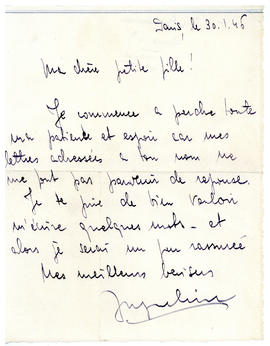 Paris, le 30.1.46
Ma chère petite fille!
Je commence a perdre toute
ma patience et espoir car mes
lettres adressées a ton nom ne
me font pas parvenir de reponse.
Je te prie de bien vouloir
m'écrire quelques mots - et
alors je serai un peu rassurée
Mes meilleurs baisers